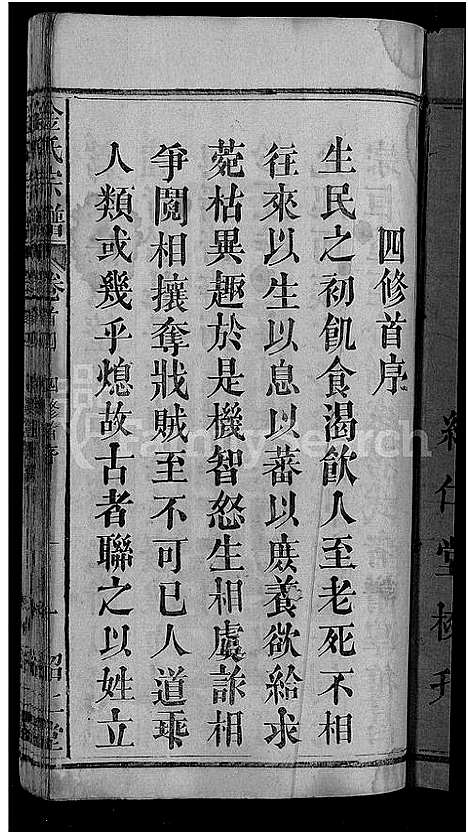 四修首序
生民之初飢食渴飲人至老死不相
往來以生以息以蕃以庶養欲給求
菀枯異趣於是機智怒生相虞詐相
爭鬩相攘奪戕賊至不可已人道乖
人類或幾乎熄故古者聯之以姓立
金氏宗譜 卷首 四修首序 一
FamilySearch